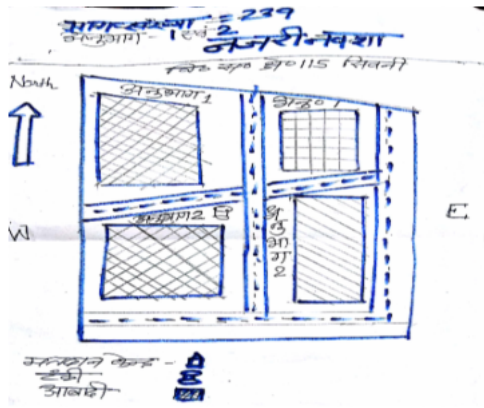 भाग संख्या = 239
अनुभाग - 1 एवं 2
नजरी नक्शा
वि० स० क्षे० 115 सिवनी
North
अनुभाग 1
अनु० 1
W
E
अनुभाग 2
अनुभाग 2
मतदान केन्द्र -
टंकी
आबादी